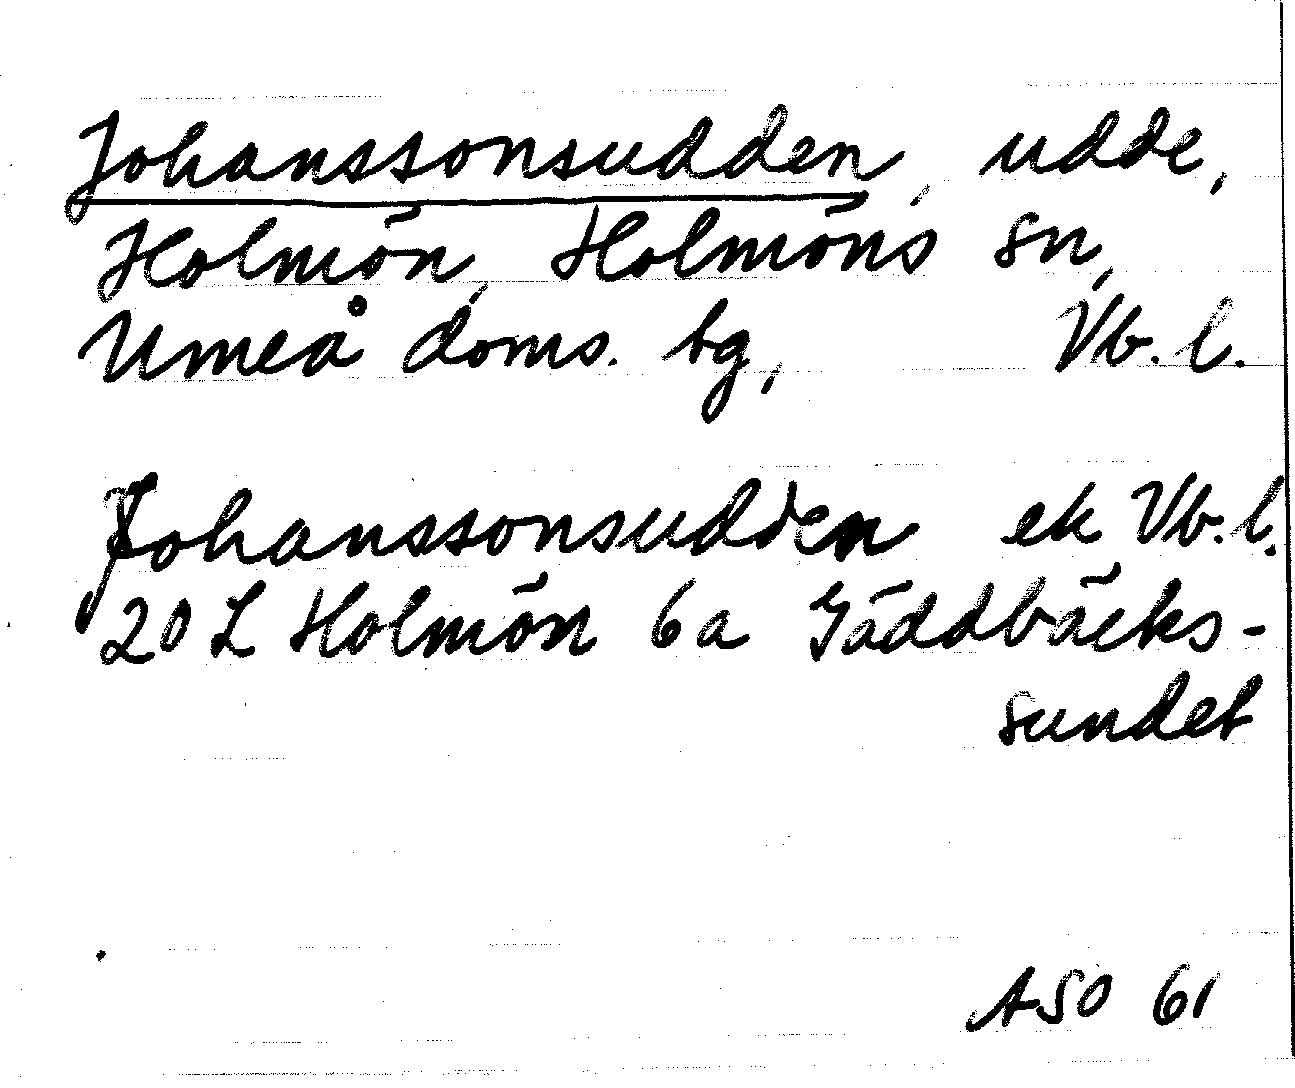 Johanssonsudden, udde,
Holmön, Holmöns sn,
Umeå doms. tg, Vb. l.
Johanssonsudden ek Vb. l.
20 L Holmön 6a Gäddbäcks-
sundet
ASO 61